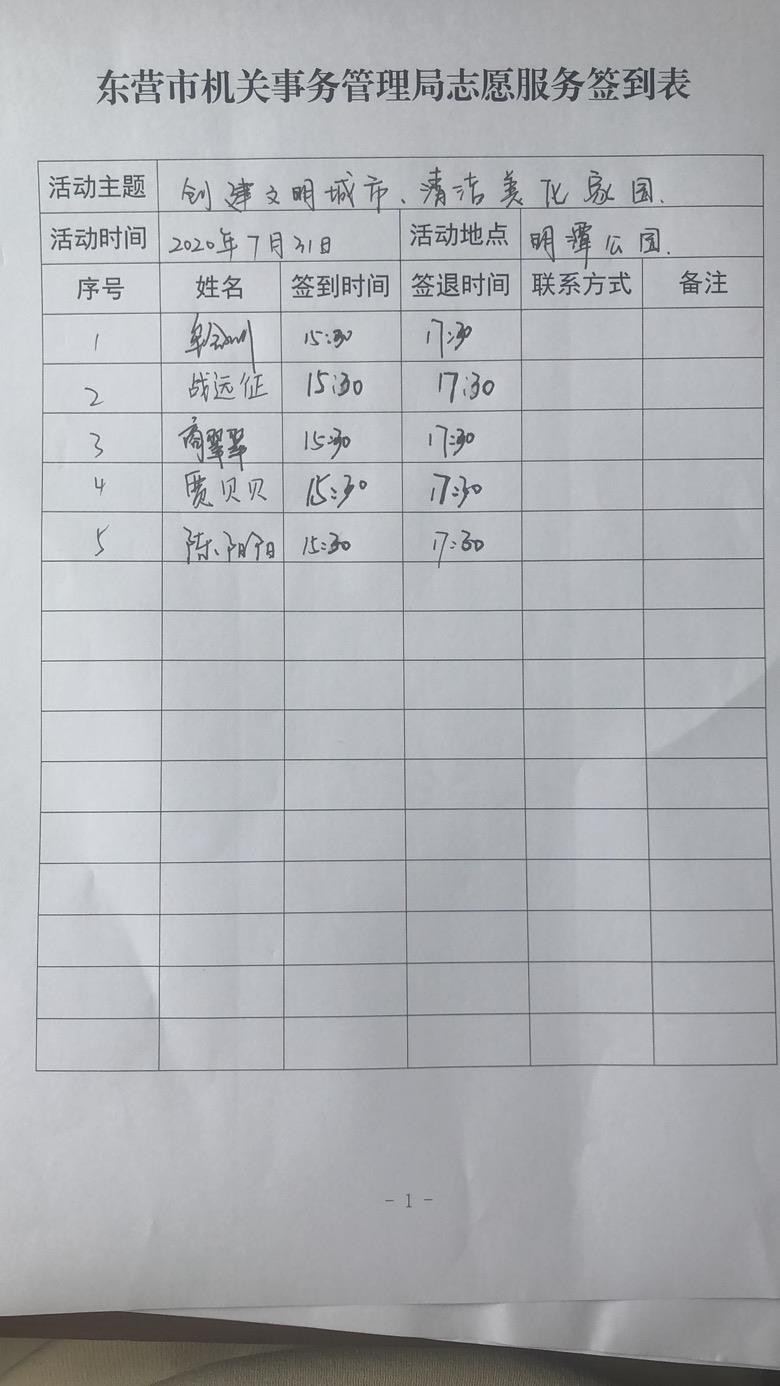 东营市机关事务管理局志愿服务签到表
活动主题 创建文明城市、清洁美化家园.
活动时间 2020年7月31日 活动地点 明潭公园.
序号 姓名 签到时间 签退时间 联系方式 备注
1 15:30 17:30
2 战远征 15:30 17:30
3 商翠翠 15:30 17:30
4 贾贝贝 15:30 17:30
5 陈阳阳 15:30 17:30
- 1 -